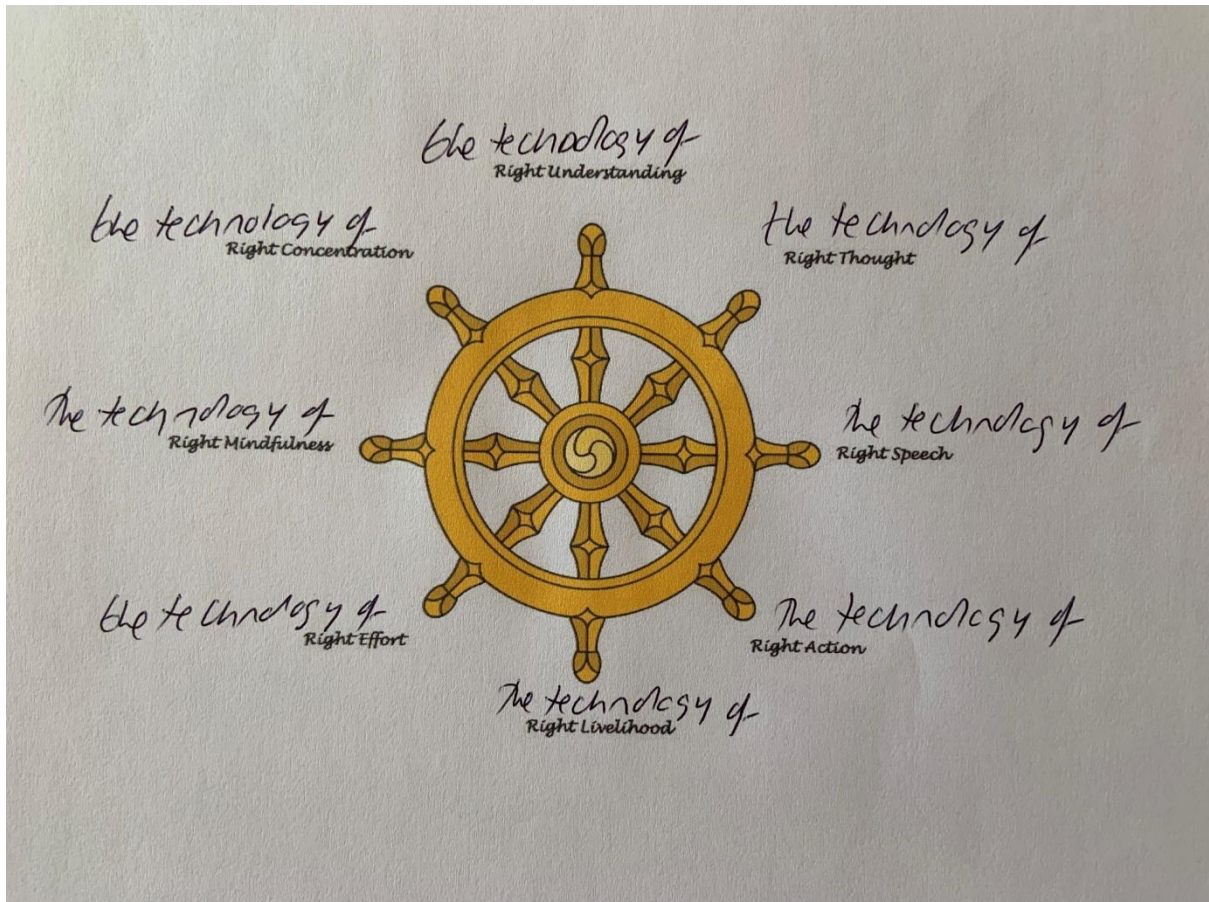 the technology of
Right Understanding
the technology of
Right Concentration
the technology of
Right Thought
The technology of
Right Mindfulness
The technology of
Right Speech
the technology of
Right Effort
The technology of
Right Action
The technology of
Right Livelihood